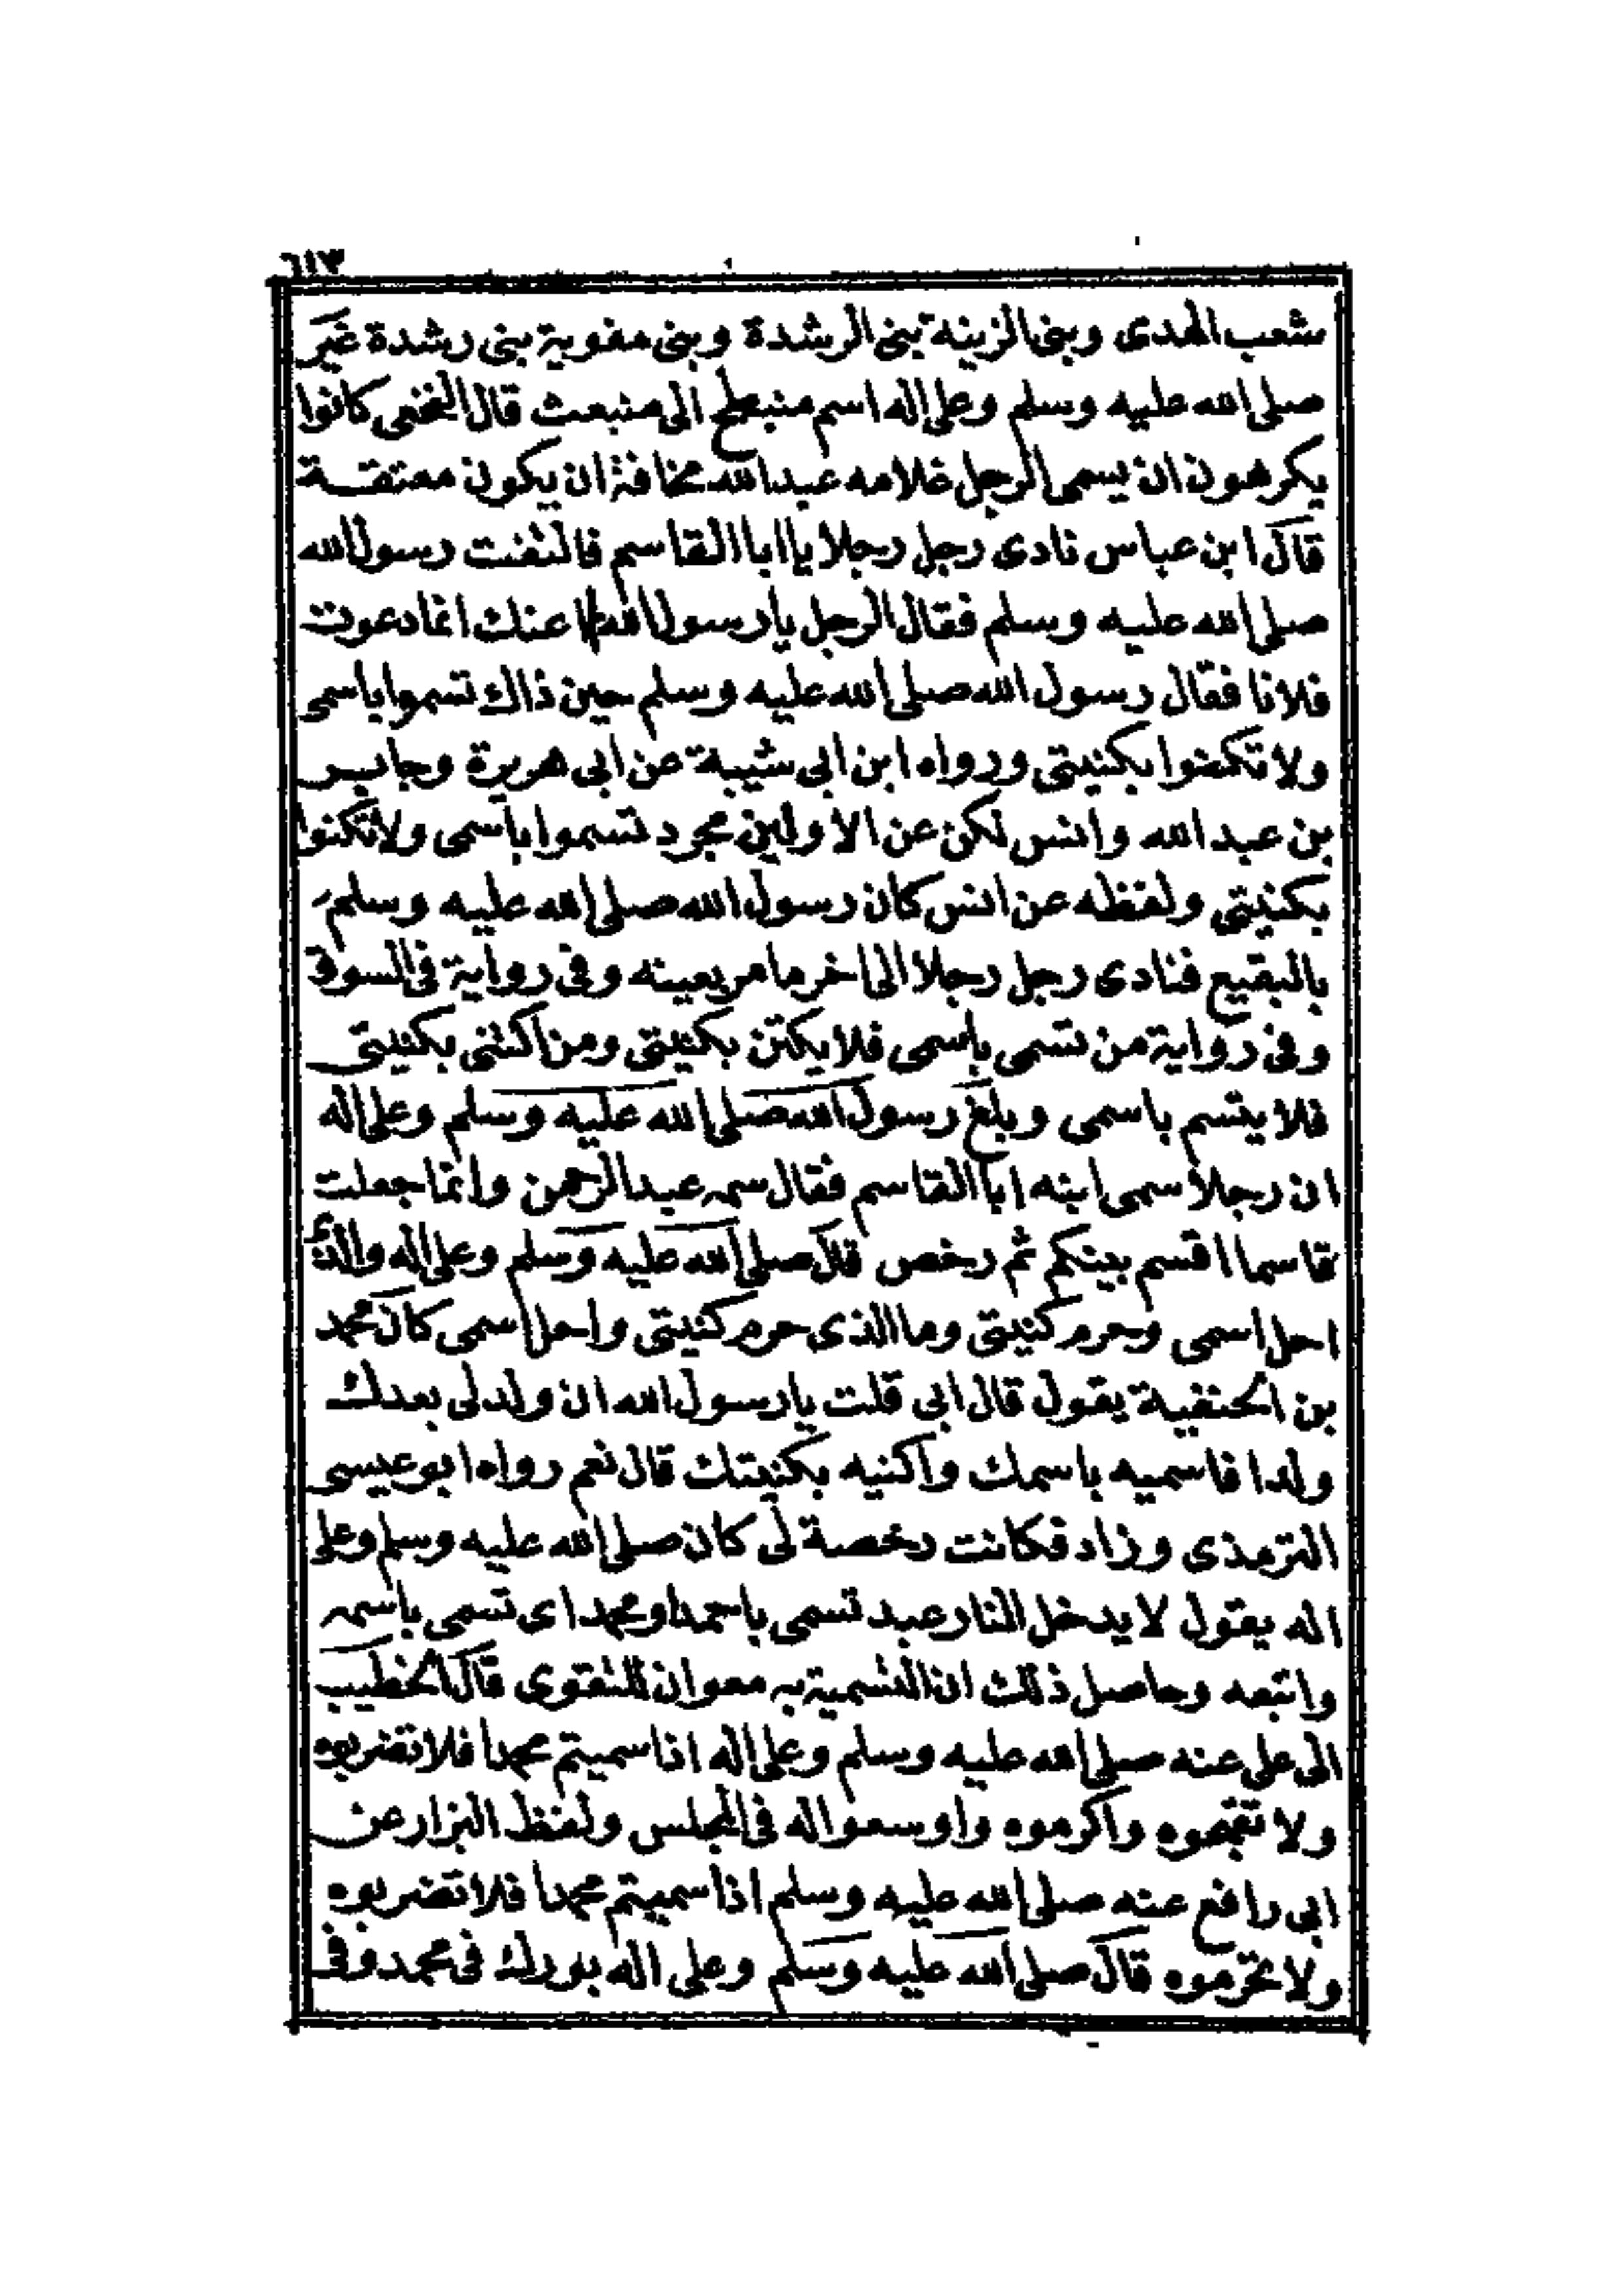 ٦١٣
شعب الهدى وبنى الزينه بنى الرشدة وبنى مغوية بنى رشدة غير
صلى الله عليه وسلم وعلى اله اسم منبطح الى منبعث قال النخعى كانوا
يكرهون ان يسمى الرجل غلامه عبد الله مخافة ان يكون معتقـة
قال ابن عباس نادى رجل رجلا يا ابا القاسم فالتفت رسول الله
صلى الله عليه وسلم فقال الرجل يا رسول الله ما عنك انما دعوت
فلانا فقال رسول الله صلى الله عليه وسلم حين ذاك تسموا باسمى
ولا تكنوا بكنيتى ورواه ابن ابى شيبة عن ابى هريرة وجابـر
بن عبد الله وانس لكن عن الاولين مجرد تسموا باسمى ولا تكنوا
بكنيتى ولفظه عن انس كان رسول الله صلى الله عليه وسلم
بالبقيع فنادى رجل رجلا الى اخر ما مر بعينه وفى رواية فى السوق
وفى رواية من تسمى باسمى فلا يكتن بكنيتى ومن اكتنى بكنيتى
فلا يتسم باسمى وبلغ رسول الله صلى الله عليه وسلم وعلى اله
ان رجلا سمى ابنه ابا القاسم فقال سمه عبد الرحمن وانما جعلت
قاسما اقسم بينكم ثم رخص قال صلى الله عليه وسلم وعلى اله
احل اسمى وحرم كنيتى وما الذى حرم كنيتى واحل اسمى كان محمد
بن الحنفية يقول قال ابى قلت يا رسول الله ان ولد لى بعدك
ولدا فاسميه باسمك واكنيه بكنيتك قال نعم رواه ابو عيسى
الترمذى وزاد فكانت رخصة لى كان صلى الله عليه وسلم وعلى
اله يقول لا يدخل النار عبد تسمى باحمد او محمد اى تسمى باسمه
واتبعه وحاصل ذلك ان التسمية به معوان للتقوى قال الخطيب
الى على عنه صلى الله عليه وسلم وعلى اله اذا سميتم محمدا فلا تضربوه
ولا تقبحوه واكرموه واوسعوا له فى المجلس ولفظ البزار عن
ابى رافع عنه صلى الله عليه وسلم اذا سميتم محمدا فلا تضربوه
ولا تحرموه قال صلى الله عليه وسلم وعلى اله بورك فى محمد وفى